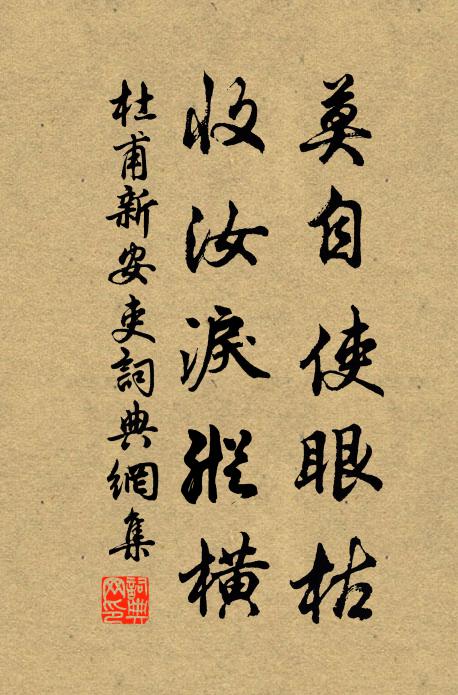 莫自使眼枯
收汝淚縱橫
杜甫新安吏詞典網集
詞典網印